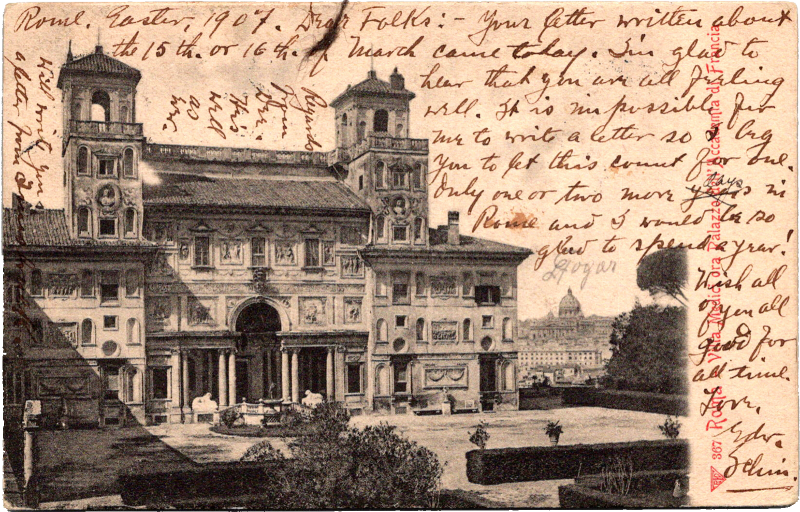 Rome, Easter, 1907. Dear Folks:- Your letter written about
the 15th. or 16th. of March came today. I'm glad to
hear that you are all feeling
well. It is impossible for
me to write a letter so I beg
you to let this count for one.
Only one or two more days in
Rome and I would be so
glad to spend a year!
Wish all
of you all
good for
all time.
Love,
Edw.
Regards
from
Dr.
His
well
as
Will write you
a letter from
367 Roma - Villa Medici, ora Palazzo dell'Accademia di Francia